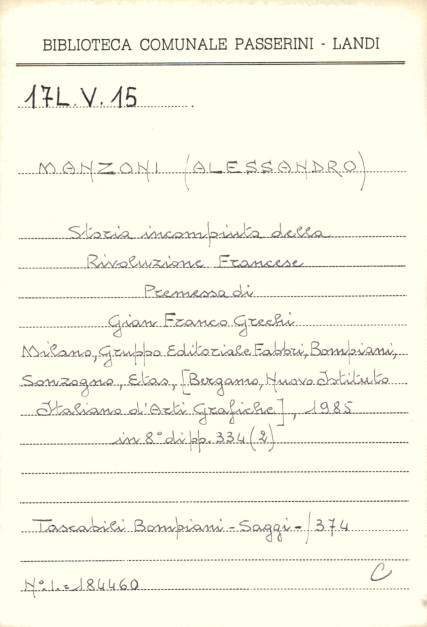 BIBLIOTECA COMUNALE PASSERINI - LANDI
17L. V. 15
MANZONI (ALESSANDRO)
Storia incompiuta della
Rivoluzione Francese
Premessa di
Gian Franco Grechi
Milano, Gruppo Editoriale Fabbri, Bompiani,
Sonzogno, Etas, [Bergamo, Nuovo Istituto
Italiano d'Arti Grafiche], 1985
in 8° di pp. 334 (2)
Tascabili Bompiani - Saggi - / 374
N° I. = 184460
C